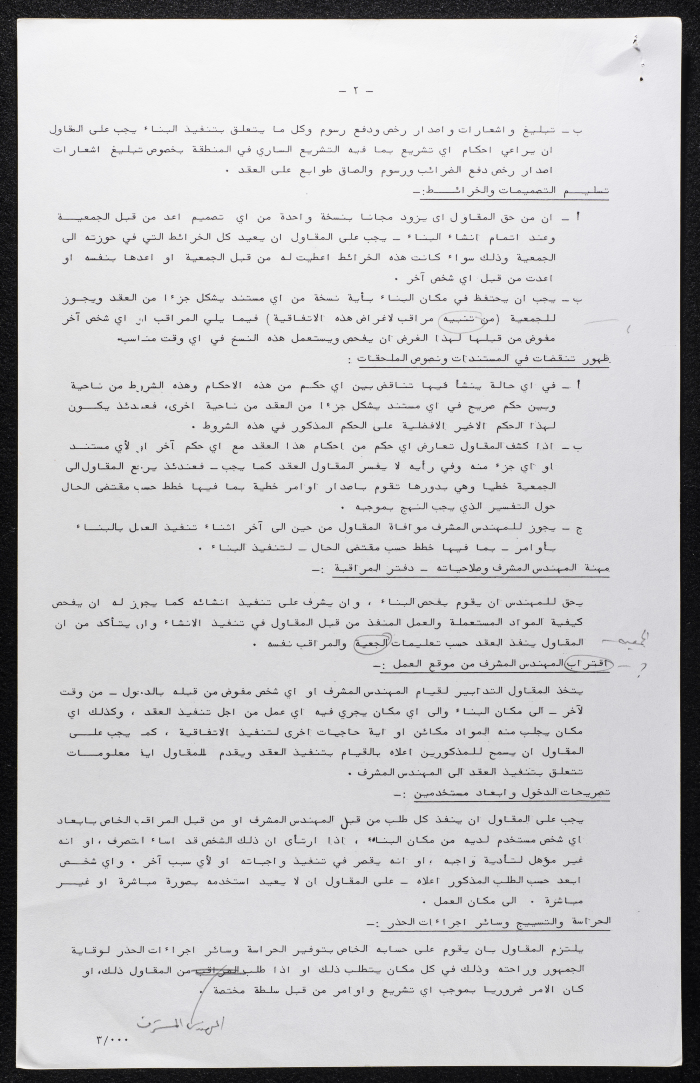 - ٢ -
ب - تبليغ واشعارات واصدار رخص ودفع رسوم وكل ما يتعلق بتنفيذ البناء يجب على المقاول
ان يراعي احكام اي تشريع بما فيه التشريع الساري في المنطقة بخصوص تبليغ اشعارات
اصدار رخص دفع الضرائب ورسوم والصاق طوابع على العقد .
تسليم التصميمات والخرائط :-
أ - ان من حق المقاول اى يزود مجانا بنسخة واحدة من اي تصميم اعد من قبل الجمعية
وعند اتمام انشاء البناء - يجب على المقاول ان يعيد كل الخرائط التي في حوزته الى
الجمعية وذلك سواء كانت هذه الخرائط اعطيت له من قبل الجمعية او اعدها بنفسه او
اعدت من قبل اي شخص آخر .
ب - يجب ان يحتفظ في مكان البناء بأية نسخة من اي مستند يشكل جزءا من العقد ويجوز
للجمعية (من تنبيه مراقب لاغراض هذه الاتفاقية) فيما يلي المراقب او اي شخص آخر
مفوض من قبلها لهذا الغرض ان يفحص ويستعمل هذه النسخ في اي وقت مناسب.
ظهور تنقضات في المستندات ونصوص الملحقات :
أ - في اي حالة ينشأ فيها تناقض بين اي حكم من هذه الاحكام وهذه الشروط من ناحية
وبين حكم صريح في اي مستند يشكل جزءا من العقد من ناحية اخرى، فعندئذ يكون
لهذا الحكم الاخير الافضلية على الحكم المذكور في هذه الشروط .
ب - اذا كشف المقاول تعارض اي حكم من احكام هذا العقد مع اي حكم آخر او لأي مستند
او اي جزء منه وفي رأيه لا يفسر المقاول العقد كما يجب - فعندئذ يرجع المقاول الى
الجمعية خطيا وهي بدورها تقوم باصدار اوامر خطية بما فيها خطط حسب مقتضى الحال
حول التفسير الذي يجب النهج بموجبه .
ج - يجوز للمهندس المشرف موافاة المقاول من حين الى آخر اثناء تنفيذ العمل بالبناء
بأوامر - بما فيها خطط حسب مقتضى الحال - لتنفيذ البناء .
مهنة المهندس المشرف وصلاحياته - دفتر المراقبة :-
يحق للمهندس ان يقوم بفحص البناء ، وان يشرف على تنفيذ انشائه كما يجوز له ان يفحص
كيفية المواد المستعملة والعمل المنفذ من قبل المقاول في تنفيذ الانشاء وان يتأكد من ان
المقاول ينفذ العقد حسب تعليمات الجعية والمراقب نفسه .
اقتراب المهندس المشرف من موقع العمل :-
؟ -
يتخذ المقاول التدابير لقيام المهندس المشرف او اي شخص مفوض من قبله بالدخول - من وقت
لآخر - الى مكان البناء والى اي مكان يجري فيه اي عمل من اجل تنفيذ العقد ، وكذلك اي
مكان يجلب منه المواد مكائن او اية حاجيات اخرى لتنفيذ الاتفاقية ، كما يجب على
المقاول ان يسمح للمذكورين اعلاه بالقيام بتنفيذ العقد ويقدم للمقاول اية معلومات
تتعلق بتنفيذ العقد الى المهندس المشرف .
تصريحات الدخول وابعاد مستخدمين :-
يجب على المقاول ان ينفذ كل طلب من قبل المهندس المشرف او من قبل المراقب الخاص بابعاد
اي شخص مستخدم لديه من مكان البناء ، اذا ارتأى ان ذلك الشخص قد اساء التصرف ،او انه
غير مؤهل لتأدية واجبه ،او انه يقصر في تنفيذ واجباته او لأي سبب آخر . واي شخص
ابعد حسب الطلب المذكور اعلاه - على المقاول ان لا يعيد استخدمه بصورة مباشرة او غير
مباشرة . الى مكان العمل .
الحراسة والتسييج وسائر اجراءات الحذر :-
يلتزم المقاول بان يقوم على حسابه الخاص بتوفير الحراسة وسائر اجراءات الحذر لوقاية
الجمهور وراحته وذلك في كل مكان يتطلب ذلك او اذا طلب المراقب من المقاول ذلك، او
كان الامر ضروريا بموجب اي تشريع واوامر من قبل سلطة مختصة .
المهندس المشرف
٣/٠٠٠